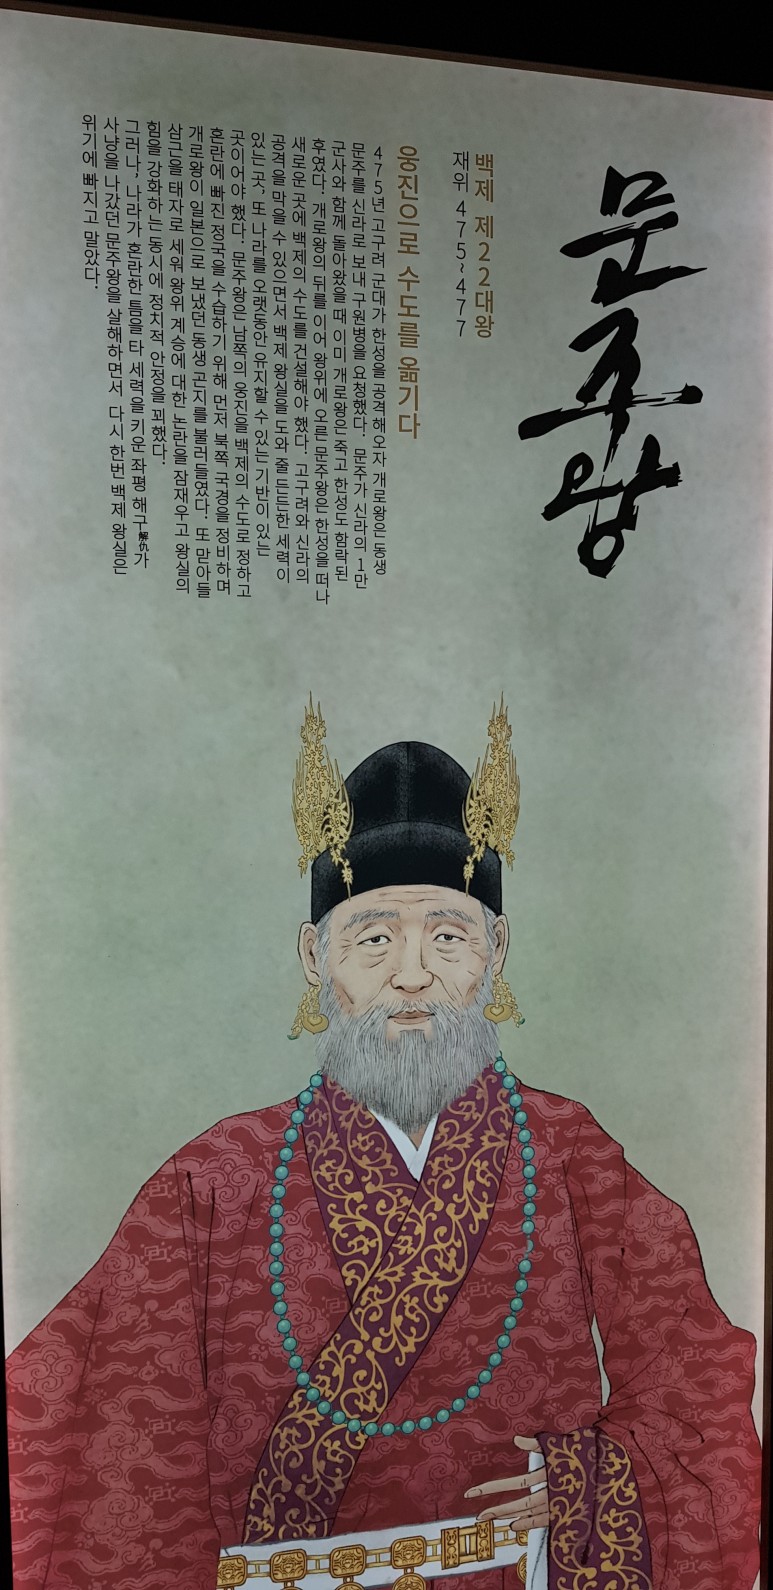 문주왕
백제 제22대왕
재위 475~477
웅진으로 수도를 옮기다
475년 고구려 군대가 한성을 공격해오자 개로왕은 동생
문주를 신라로 보내 구원병을 요청했다. 문주가 신라의 1만
군사와 함께 돌아왔을 때 이미 개로왕은 죽고 한성도 함락된
후였다. 개로왕의 뒤를 이어 왕위에 오른 문주왕은 한성을 떠나
새로운 곳에 백제의 수도를 건설해야 했다. 고구려와 신라의
공격을 막을 수 있으면서 백제 왕실을 도와 줄 든든한 세력이
있는 곳, 또 나라를 오랫동안 유지할 수 있는 기반이 있는
곳이어야 했다. 문주왕은 남쪽의 웅진을 백제의 수도로 정하고
혼란에 빠진 정국을 수습하기 위해 먼저 북쪽 국경을 정비하며
개로왕이 일본으로 보냈던 동생 곤지를 불러들였다. 또 맏아들
삼근을 태자로 세워 왕위 계승에 대한 논란을 잠재우고 왕실의
힘을 강화하는 동시에 정치적 안정을 꾀했다.
그러나, 나라가 혼란한 틈을 타 세력을 키운 좌평 해구解仇가
사냥을 나갔던 문주왕을 살해하면서 다시 한번 백제 왕실은
위기에 빠지고 말았다.